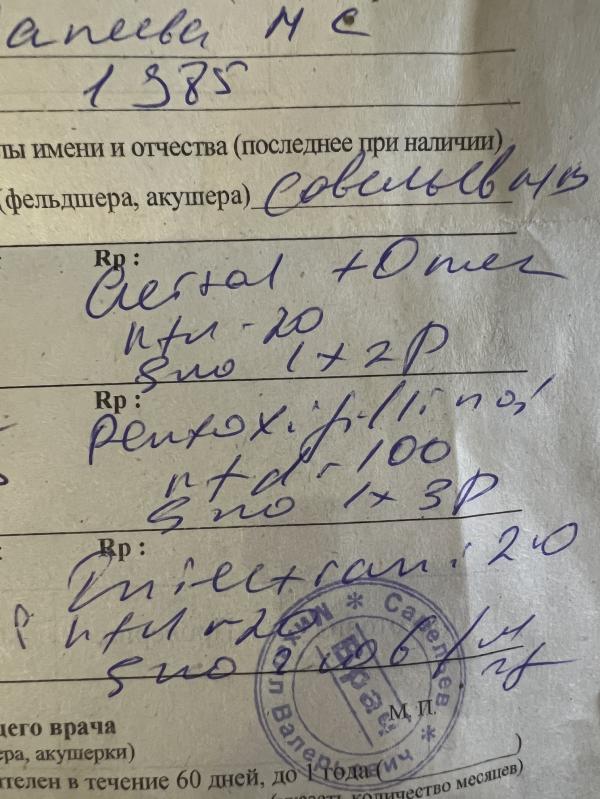 апеева М С
1985
лы имени и отчества (последнее при наличии)
(фельдшера, акушера) Савельев МВ
Rp :
Aertal + Omez
N - 20
по 1 x 2 р
Rp :
Pentoxifillini 0,1
N - 100
по 1 x 3 р
Rp :
Injectrani 2.0
N - 20
по 2,0 в/м
* Савельев * Михаил Валерьевич
Врач
М. П.
щего врача
ера, акушерки)
ителен в течение 60 дней, до 1 года (
)
количество месяцев)